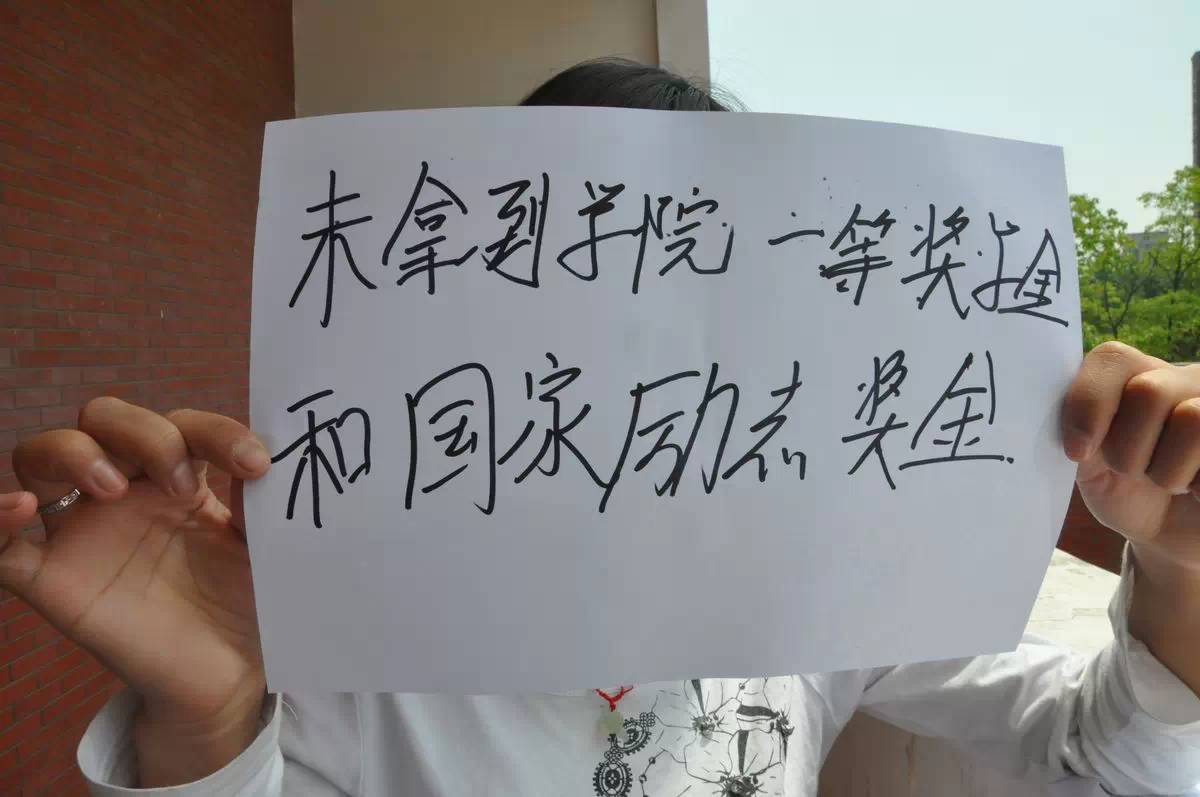 未拿到学院一等奖学金
和国家励志奖金.